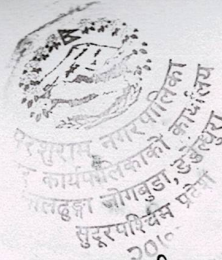 परशुराम नगरपालिका
कार्यपालिकाको कार्यालय
जोगबुडा, डडेल्धुरा
सुदूरपश्चिम प्रदेश